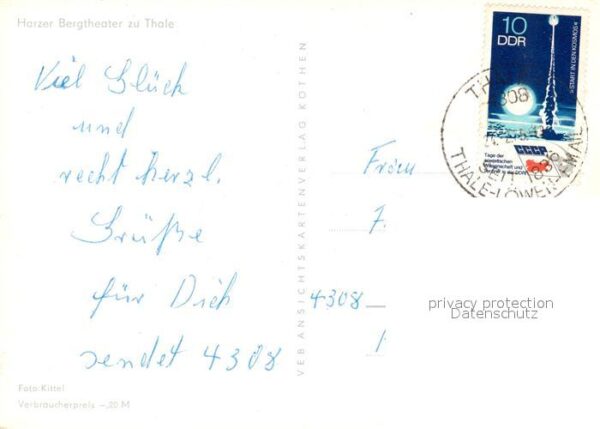 Harzer Bergtheater zu Thale
Viel Glück
und
recht herzl.
Grüße
für Dich
sendet 4308
Foto: Kittel
Verbraucherpreis -,20 M
VEB ANSICHTSKARTENVERLAG KÖTHEN
10
DDR
»START IN DEN KOSMOS«
Tage der
sowjetischen
Wissenschaft und
Technik in der DDR
THALE
4308
SEIT 1835
THALE-LÖWEN-EMAIL
7.
4308
1
privacy protection
Datenschutz